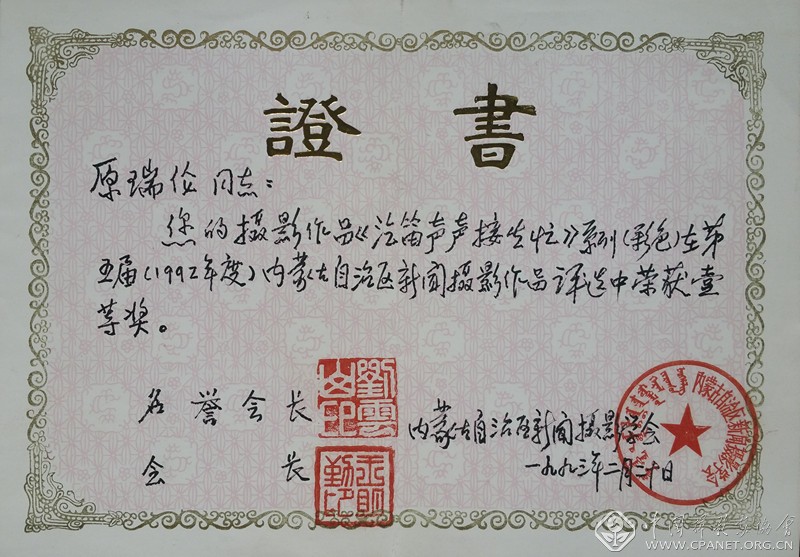 證書
原瑞伦同志：
您的摄影作品《汽笛声声接生忙》系列(彩色)在第
五届(1992年度)内蒙古自治区新闻摄影作品评选中荣获壹
等奖。
名誉会长
劉雲山印
会长
内蒙古自治区新闻摄影学会
一九九三年二月二十日
内蒙古自治区新闻摄影学会
WWW.CPANET.ORG.CN